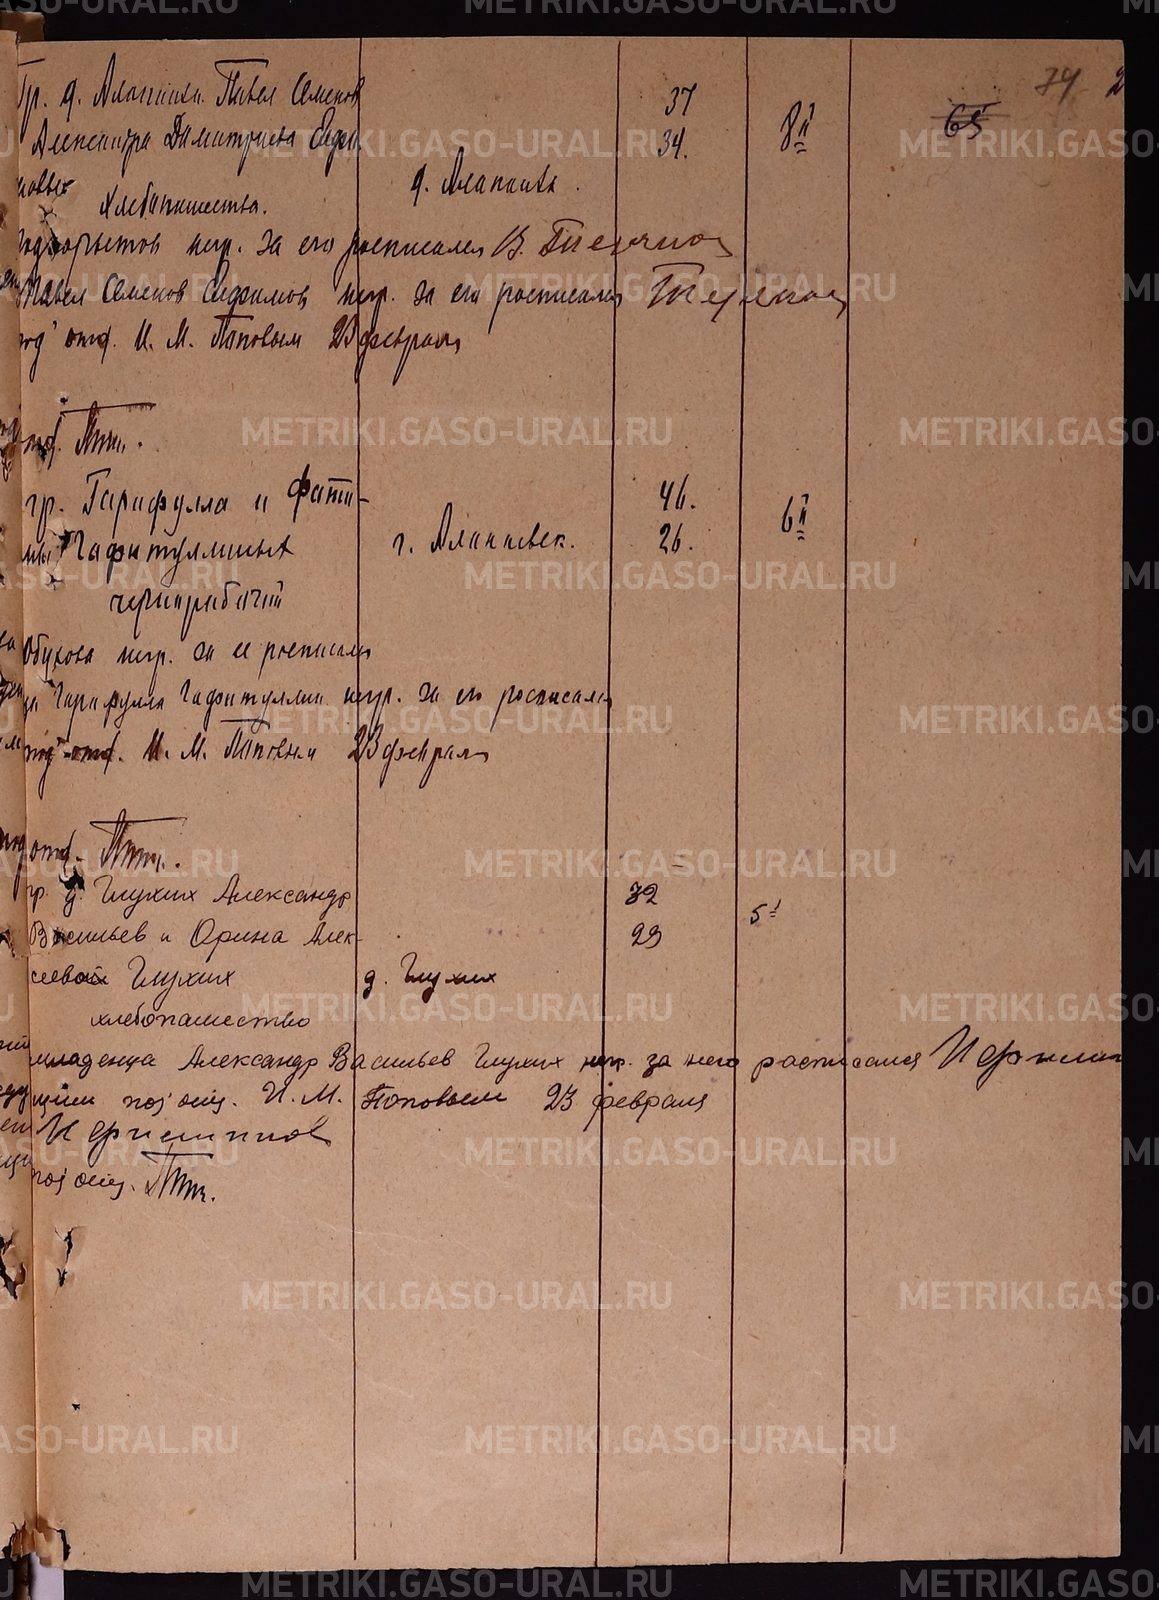 74 2
65
Гр. д. Алапаиха Павел Семенов 37
Александра Дмитриева Ефи- 34. 8й
мовы д. Алапаиха.
хлебопашество.
негр. за его росписался В.
Павел Семенов Ефимов негр. за его росписался
под'отд. И. М. Поповым 23 февраля
отд.
гр. Гарифулла и Фати- 46.
Гафитуллины г. Алапаевск. 26. 6й
чернорабочий
Обухова негр. за ее росписался
Гарифулла Гафитуллин негр. за его росписался
под'отд. И. М. Поповым 23 февраля
отд.
гр. д. Глухих Александр 32
Васильев и Орина Алек- 29 5й
сеевой Глухих д. Глухих
хлебопашество
младенца Александр Васильев Глухих негр. за него расписался И Филип
под отд. И. М. Поповым 23 февраля
И Филиппов
под отд.
METRIKI.GASO-URAL.RU